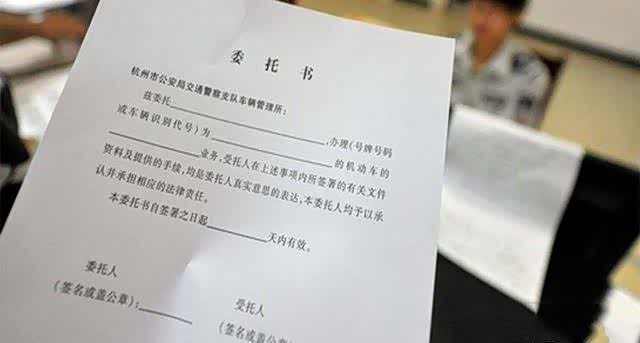 委托书
杭州市公安局交通警察支队车辆管理所：
兹委托 ,办理(号牌号码
或车辆识别代号)为 的机动车的
业务,受托人在上述事项内所签署的有关文件
资料及提供的手续,均是委托人真实意思的表达,本委托人均予以承
认并承担相应的法律责任。
本委托书自签署之日起 天内有效。
委托人
(签名或盖公章):
受托人
(签名或盖公章)